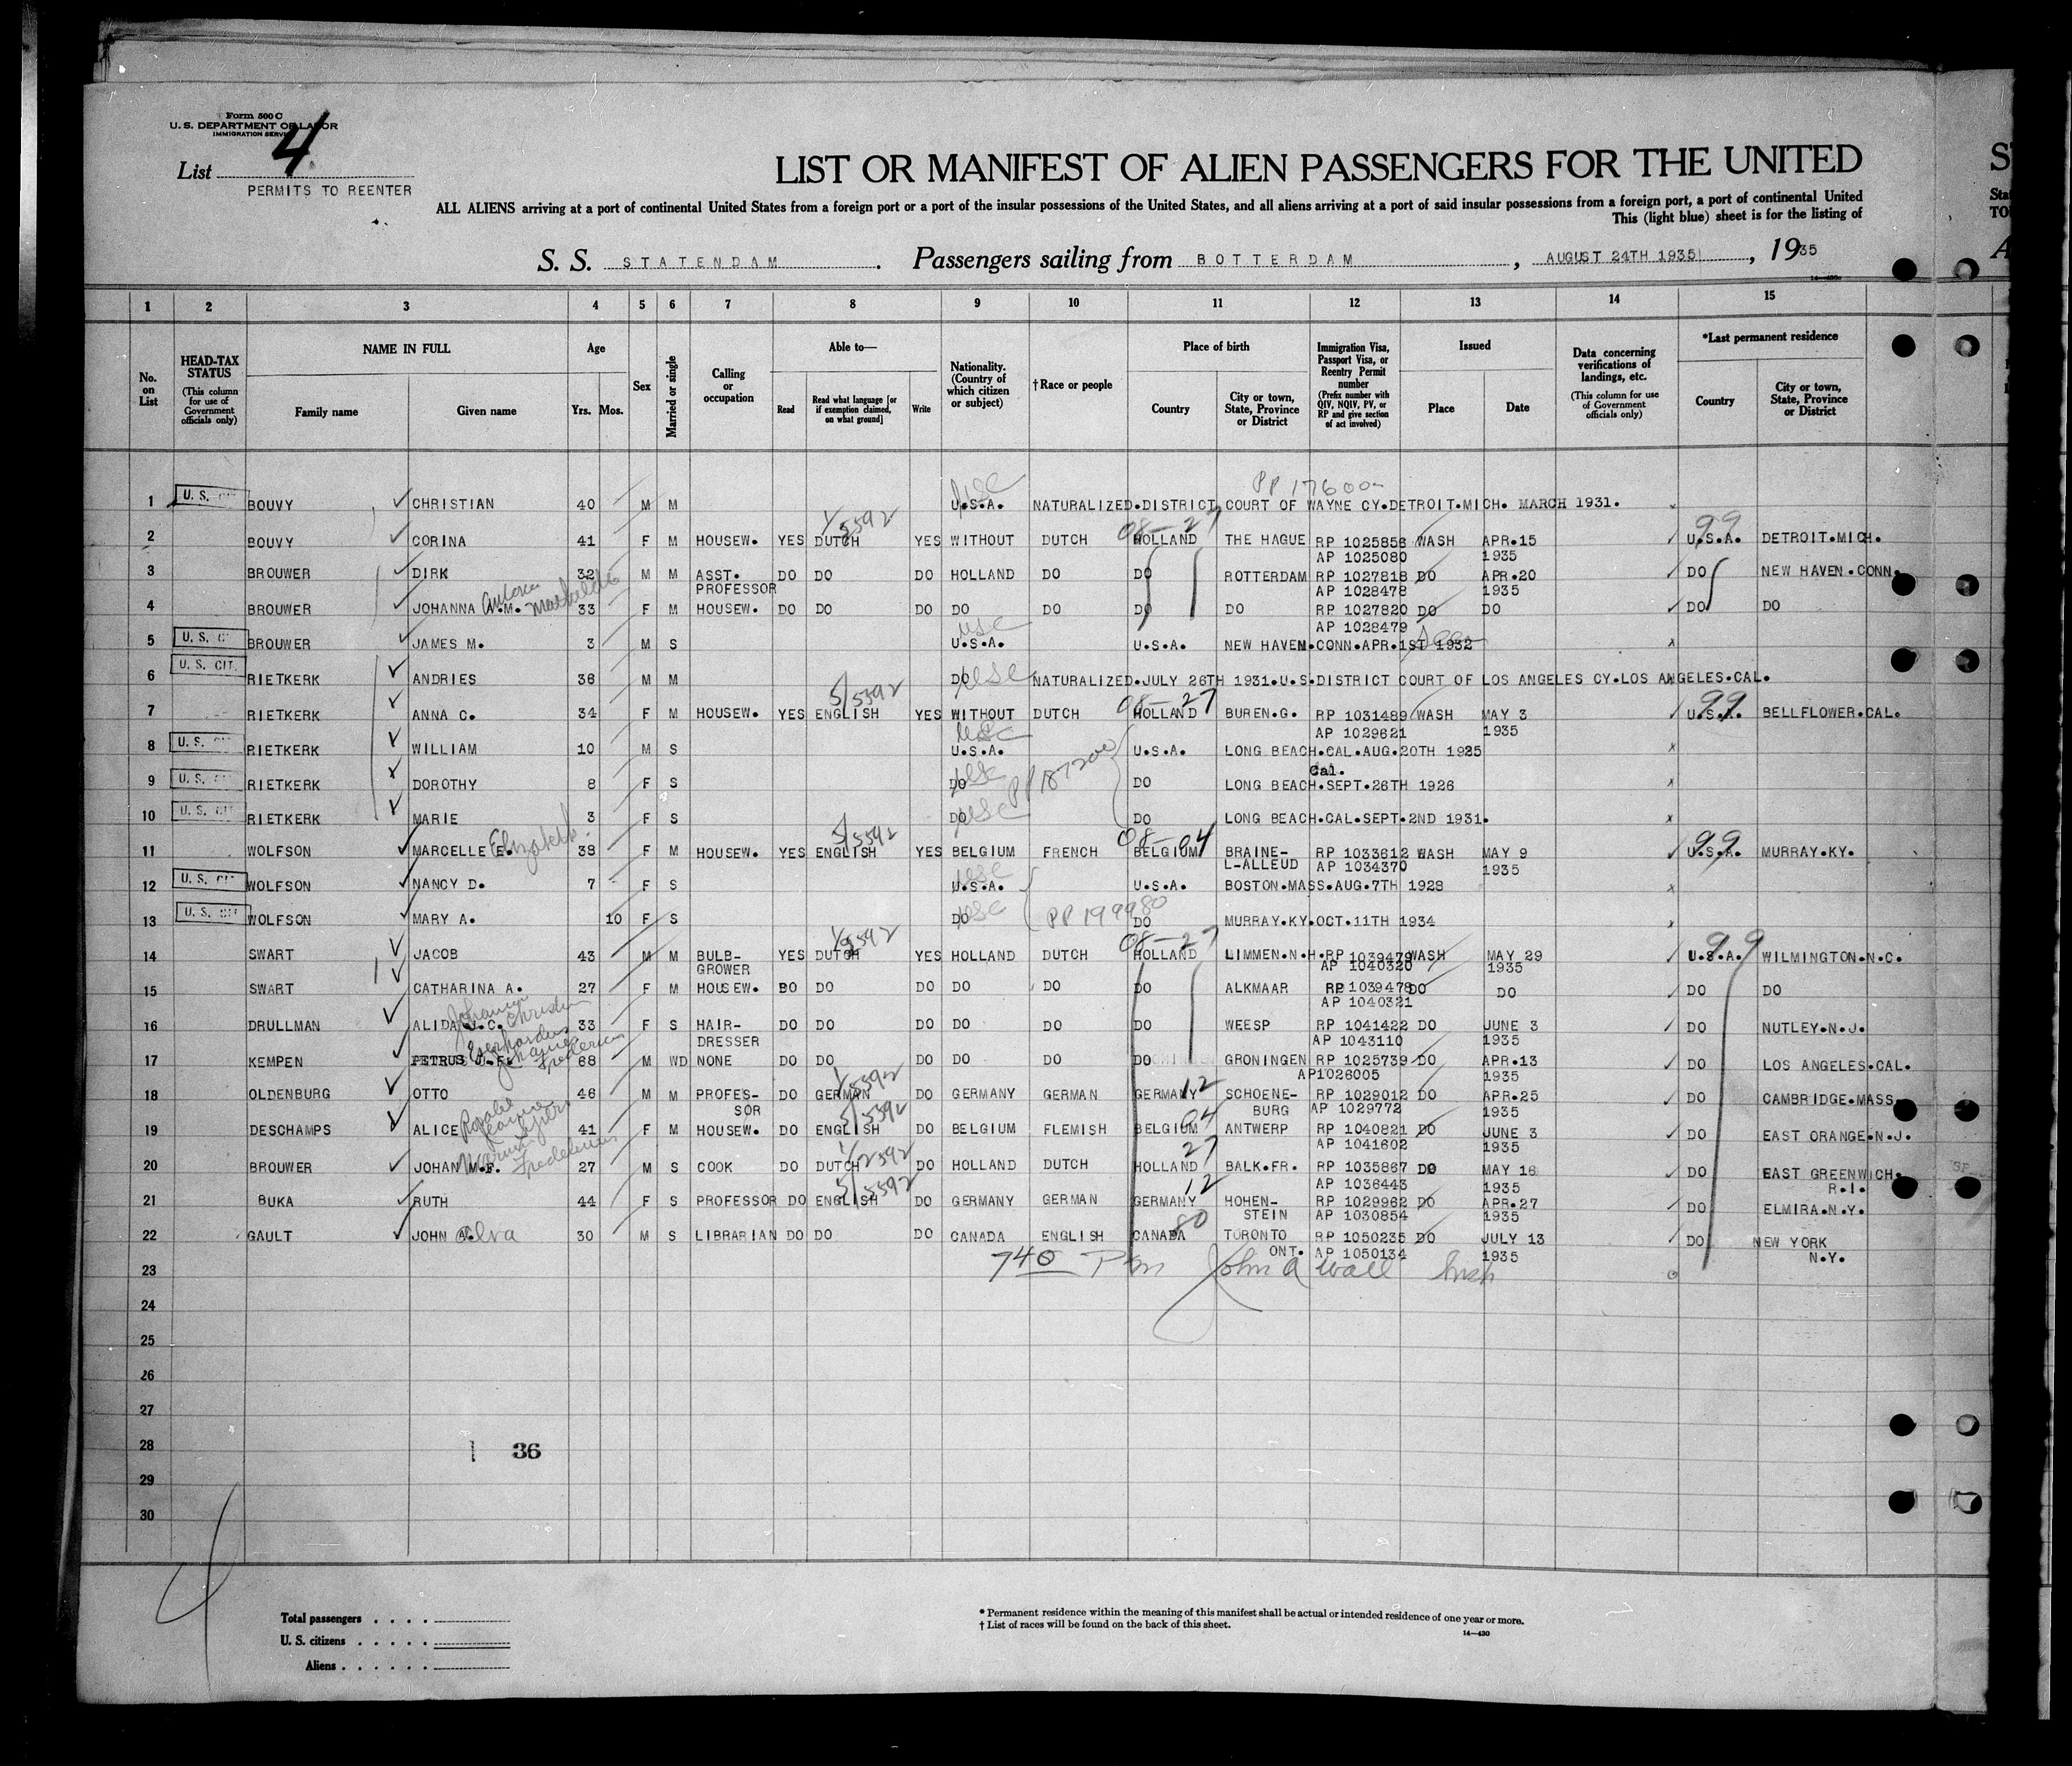 Form 500 C
U. S. DEPARTMENT OF LABOR
IMMIGRATION SERVICE
List 4
PERMITS TO REENTER
LIST OR MANIFEST OF ALIEN PASSENGERS FOR THE UNITED
ALL ALIENS arriving at a port of continental United States from a foreign port or a port of the insular possessions of the United States, and all aliens arriving at a port of said insular possessions from a foreign port, a port of continental United
This (light blue) sheet is for the listing of
S. S. STATENDAM. Passengers sailing from BOTTERDAM, AUGUST 24TH 1935, 1935
14—430
1 2 3 4 5 6 7 8 9 10 11 12 13 14 15
No. on List
HEAD-TAX STATUS (This column for use of Government officials only)
NAME IN FULL
Family name
Given name
Age
Yrs. Mos.
Sex
Married or single
Calling or occupation
Able to—
Read
Read what language [or if exemption claimed, on what ground]
Write
Nationality. (Country of which citizen or subject)
† Race or people
Place of birth
Country
City or town, State, Province or District
Immigration Visa, Passport Visa, or Reentry Permit number (Prefix number with QIV, NQIV, PV, or RP and give section of act involved)
Issued
Place
Date
Data concerning verifications of landings, etc. (This column for use of Government officials only)
*Last permanent residence
Country
City or town, State, Province or District
PP 17600
1 U. S. CIT BOUVY CHRISTIAN 40 M M USC U.S.A. NATURALIZED.DISTRICT COURT OF WAYNE CY.DETROIT.MICH. MARCH 1931.
1/5592 08-27 99
2 BOUVY CORINA 41 F M HOUSEW. YES DUTCH YES WITHOUT DUTCH HOLLAND THE HAGUE RP 1025856 WASH APR.15 U.S.A. DETROIT.MICH.
AP 1025080 1935
3 BROUWER DIRK 32 M M ASST. DO DO DO HOLLAND DO DO ROTTERDAM RP 1027818 DO APR.20 DO NEW HAVEN.CONN.
PROFESSOR AP 1028478 1935
4 BROUWER JOHANNA A.M. Mathilde 33 F M HOUSEW. DO DO DO DO DO DO DO RP 1027820 DO DO DO DO
AP 1028479
5 U. S. C BROUWER JAMES M. 3 M S USC U.S.A. U.S.A. NEW HAVEN.CONN.APR.1ST 1932
6 U. S. CIT. RIETKERK ANDRIES 36 M M DO USC NATURALIZED.JULY 26TH 1931.U.S.DISTRICT COURT OF LOS ANGELES CY.LOS ANGELES.CAL.
5/5592 08-27 99
7 RIETKERK ANNA C. 34 F M HOUSEW. YES ENGLISH YES WITHOUT DUTCH HOLLAND BUREN.G. RP 1031489 WASH MAY 3 U.S.A. BELLFLOWER.CAL.
AP 1029621 1935
8 U. S. CIT RIETKERK WILLIAM 10 M S USC U.S.A. U.S.A. LONG BEACH.CAL.AUG.20TH 1925
Cal.
9 U. S. CIT RIETKERK DOROTHY 8 F S DO USC PP 187200 DO LONG BEACH.SEPT.26TH 1926
10 U. S. CIT RIETKERK MARIE 3 F S DO USC DO LONG BEACH.CAL.SEPT.2ND 1931.
5/5592 08-04 99
11 WOLFSON MARCELLE E. Elizabeth 38 F M HOUSEW. YES ENGLISH YES BELGIUM FRENCH BELGIUM BRAINE- RP 1033612 WASH MAY 9 U.S.A. MURRAY.KY.
L-ALLEUD AP 1034370 1935
12 U. S. CIT WOLFSON NANCY D. 7 F S USC U.S.A. U.S.A. BOSTON.MASS.AUG.7TH 1928
13 U. S. CIT WOLFSON MARY A. 10 F S DO USC PP 199980 DO MURRAY.KY.OCT.11TH 1934
1/5592 08-27 99
14 SWART JACOB 43 M M BULB- YES DUTCH YES HOLLAND DUTCH HOLLAND LIMMEN.N.H. RP 1039479 WASH MAY 29 U.S.A. WILMINGTON.N.C.
GROWER AP 1040320 1935
15 SWART CATHARINA A. 27 F M HOUSEW. DO DO DO DO DO DO ALKMAAR RP 1039478 DO DO DO DO
AP 1040321
Johanna Christin
16 DRULLMAN ALIDA J.C. 33 F S HAIR- DO DO DO DO DO DO WEESP RP 1041422 DO JUNE 3 DO NUTLEY.N.J.
DRESSER AP 1043110 1935
17 KEMPEN PETRUS J.F. 68 M WD NONE DO DO DO DO DO DO GRONINGEN RP 1025739 DO APR.13 DO LOS ANGELES.CAL.
AP1026005 1935
1/5592 12
18 OLDENBURG OTTO 46 M M PROFES- DO GERMAN DO GERMANY GERMAN GERMANY SCHOENE- RP 1029012 DO APR.25 DO CAMBRIDGE.MASS.
SOR BURG AP 1029772 1935
5/5592 04
19 DESCHAMPS ALICE 41 F M HOUSEW. DO ENGLISH DO BELGIUM FLEMISH BELGIUM ANTWERP RP 1040821 DO JUNE 3 DO EAST ORANGE.N.J.
AP 1041602 1935
27
20 BROUWER JOHAN M.F. 27 M S COOK DO DUTCH DO HOLLAND DUTCH HOLLAND BALK.FR. RP 1035867 DO MAY 16 DO EAST GREENWICH.
AP 1036443 1935 R.I.
5/5592 12
21 BUKA RUTH 44 F S PROFESSOR DO ENGLISH DO GERMANY GERMAN GERMANY HOHEN- RP 1029962 DO APR.27 DO ELMIRA.N.Y.
STEIN AP 1030854 1935
80
22 GAULT JOHN A. Alva 30 M S LIBRARIAN DO DO DO CANADA ENGLISH CANADA TORONTO RP 1050235 DO JULY 13 DO NEW YORK
ONT. AP 1050134 1935 N.Y.
23 740 Pm John A Wall Insp
24
25
26
27
28 36
29
30
Total passengers . . . .
U. S. citizens . . . . .
Aliens . . . . . .
* Permanent residence within the meaning of this manifest shall be actual or intended residence of one year or more.
† List of races will be found on the back of this sheet.
14—430